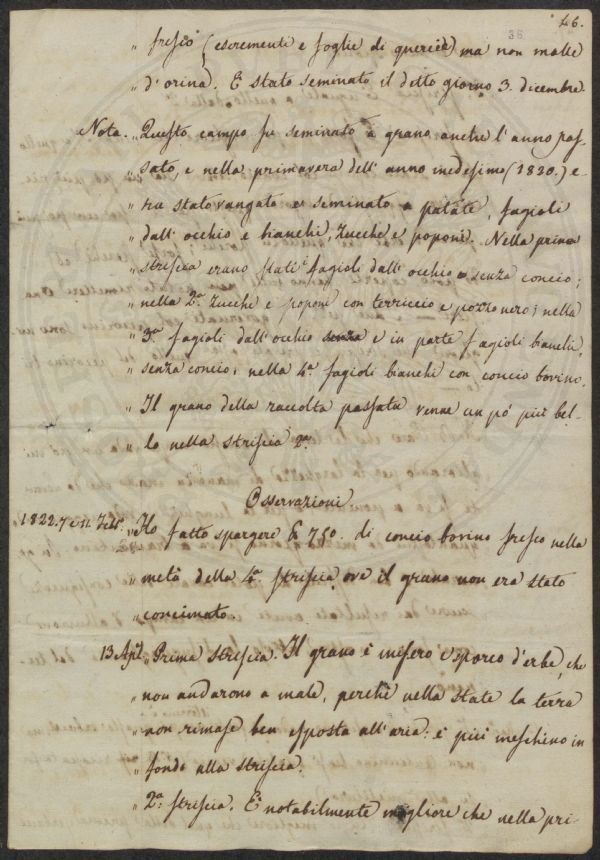 46.
36
„ fresco (escrementi e foglie di quercie) ma non molle
„ d'orina. E stato seminato il detto giorno 3. dicembre.
Nota. „ Questo campo fu seminato a grano anche l'anno pas-
„ sato, e nella primavera dell'anno medesimo (1820.) e-
„ ra stato vangato e seminato a patate, fagioli
„ dall'occhio e bianchi, zucche e poponi. Nella prima
„ striscia erano stati i fagioli dall'occhio senza concio;
„ nella 2.ª zucche e poponi con terriccio e pozzo nero; nella
„ 3.ª fagioli dall'occhio senza e in parte fagioli bianchi,
„ senza concio; nella 4.ª fagioli bianchi con concio bovino.
„ Il grano della raccolta passata venne un pó più bel-
„ lo nella striscia 2.ª
Osservazioni
1822. 7 e 11 Febb.º „ Ho fatto spargere ℔ 750. di concio bovino fresco nella
„ metà della 4.ª striscia, ove il grano non era stato
„ concimato.
13 Apl. „ Prima striscia. Il grano è misero e sporco d'erbe, che
„ non andarono a male, perchè nella state la terra
„ non rimase ben esposta all'aria: è più meschino in
„ fondo alla striscia.
„ 2.ª striscia. E' notabilmente migliore che nella pri-